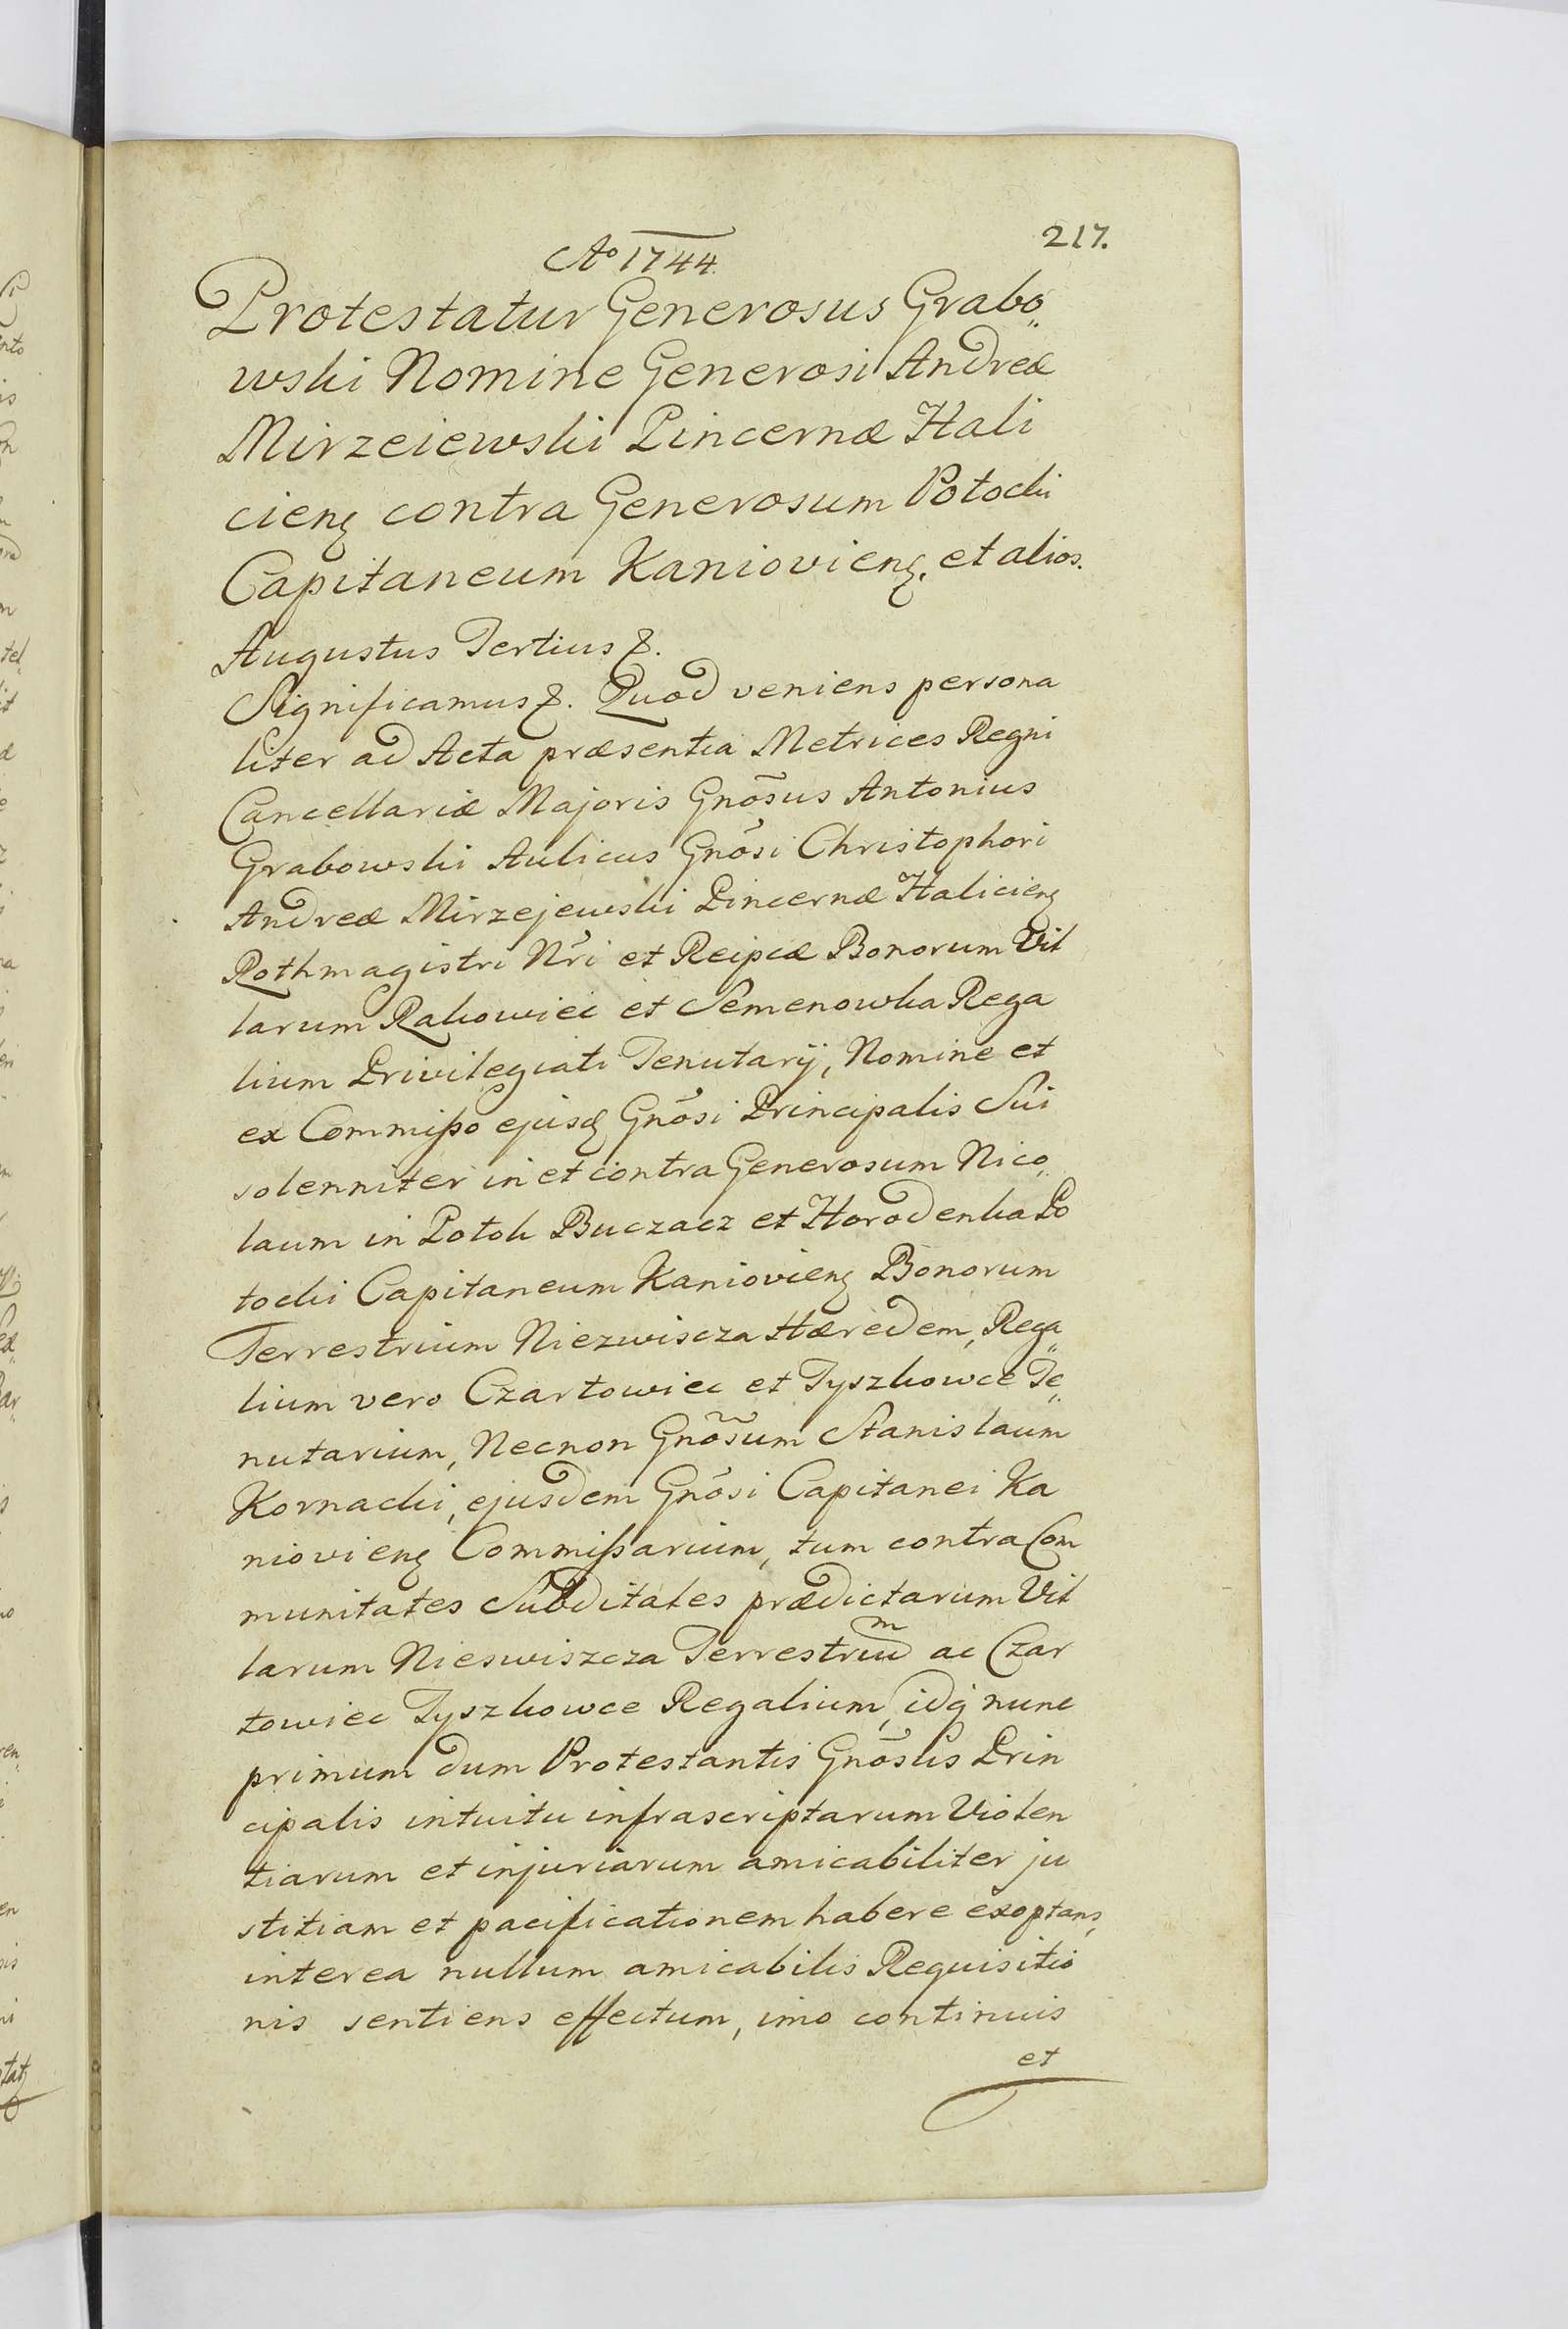 217.
Ao 1744.
Protestatur Generosus Grabo„
wski Nomine Generosi Andreæ
Mirzeiewski Pincernæ Hali
cien̨ contra Generosum Potocki
Capitaneum Kaniovien̨. et alios.
Augustus Tertius &.
Significamus &. Quod veniens persona
liter ad Acta præsentia Metrices Regni
Cancellariæ Majoris Gnõsus Antonius
Grabowski Aulicus Gnõsi Christophori
Andreæ Mirzejewski Pincernæ Halicien̨
Rothmagistri Nr̃i et Reipcæ Bonorum Vil
larum Rakowiec et Semenowka Rega
lium Privilegiati Tenutarij, Nomine et
ex Commißo ejusd̨ Gnõsi Principalis Sui
solenniter in et contra Generosum Nico„
laum in Potok Buczacz et Horodenka Po
tocki Capitaneum Kaniovien̨ Bonorum
Terrestrium Niezwiscza Hæredem, Rega„
lium vero Czartowiec et Tyszkowce Te„
nutarium, Necnon Gnõsum Stanislaum
Kornacki, ejusdem Gnõsi Capitanei Ka
niovien̨ Commißarium, tum contra Com
munitates Subditales prædictarum Vil
larum Nieswiszcza Terrestriũm ac Czar
towiec Tyszkowce Regalium, idq́ nunc
primum dum Protestantis Gnõsus Prin
cipalis intuitu infrascriptarum Violen
tiarum et injuriarum amicabiliter ju
stitiam et pacificationem habere exoptans,
interea nullum amicabilis Requisitio
nis sentiens effectum, imo continuis
et